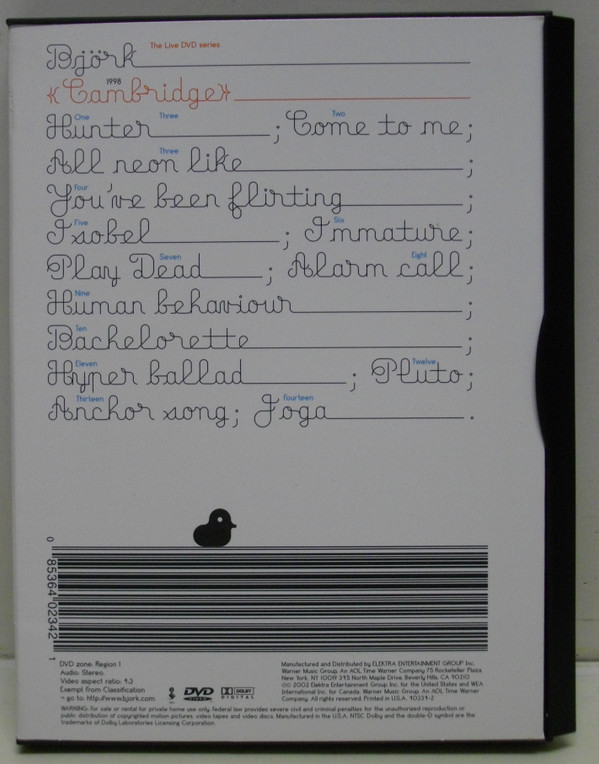 Björk The Live DVD series
1998
«Cambridge»
One Three Two
Hunter ; Come to me;
Three
All neon like ;
Four
You've been flirting ;
Five Six
Isobel ; Immature;
Seven Eight
Play Dead ; Alarm call;
Nine
Human behaviour ;
Ten
Bachelorette ;
Eleven Twelve
Hyper ballad ; Pluto;
Thirteen Fourteen
Anchor song; Joga .
0 85364 02342 1
DVD zone: Region 1
Audio: Stereo.
Video aspect ratio: 4:3
Exempt from Classification
~ go to: http://www.bjork.com
DVD VIDEO
DOLBY DIGITAL
Manufactured and Distributed by ELEKTRA ENTERTAINMENT GROUP Inc.
Warner Music Group. An AOL Time Warner Company 75 Rockefeller Plaza,
New York, NY 10019 345 North Maple Drive, Beverly Hills, CA 90210
2002 Elektra Entertainment Group Inc. for the United States and WEA
International Inc. for Canada. Warner Music Group. An AOL Time Warner
Company. All rights reserved. Printed in U.S.A. 40234-2
WARNING: for sale or rental for private home use only. federal law provides severe civil and criminal penalties for the unauthorized reproduction or
public distribution of copyrighted motion pictures. video tapes and video discs. Manufactured in the U.S.A. NTSC Dolby and the double-D symbol are the
Trademarks of Dolby Laboratories Licensing Corporation.